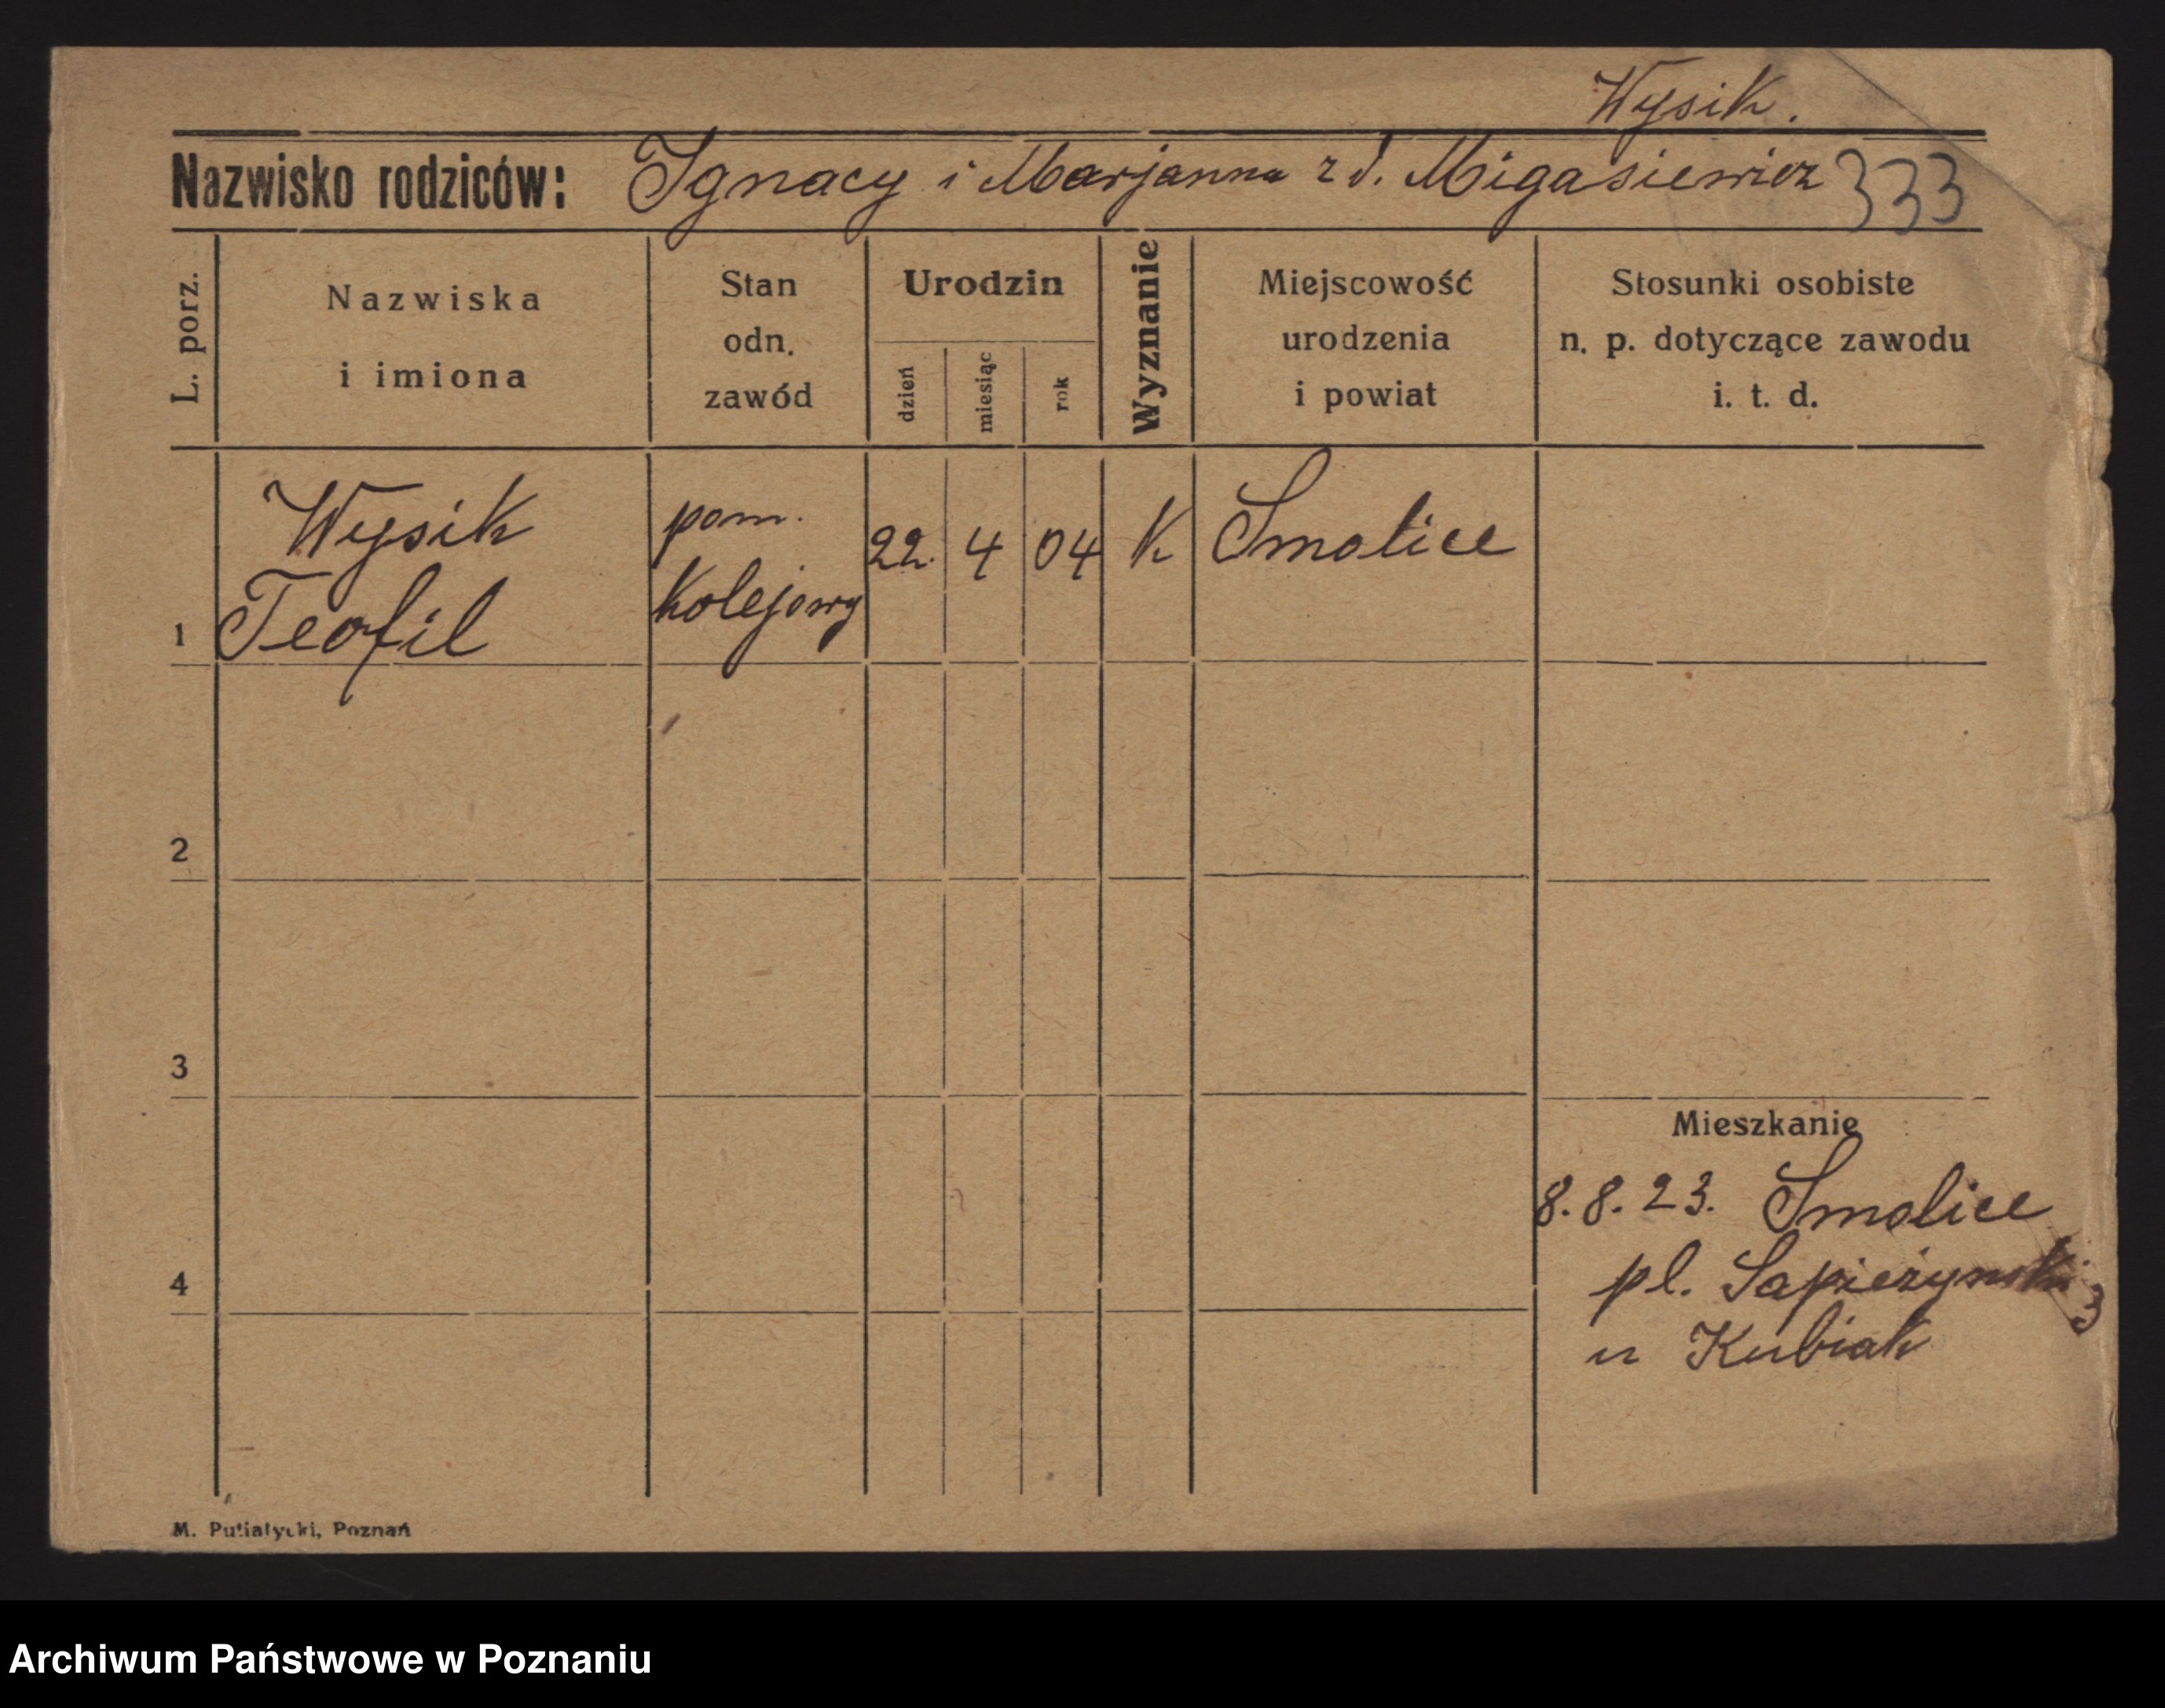 Wysik.
Nazwisko rodziców: Ignacy i Marjanna z d. Migasiewicz 333
L. porz.
Nazwiska i imiona
Stan odn. zawód
Urodzin
dzień
miesiąc
rok
Wyznanie
Miejscowość urodzenia i powiat
Stosunki osobiste n. p. dotyczące zawodu i. t. d.
1
Wysik
Teofil
pom.
Kolejowy
22. 4 04 K Smolice
2
3
4
Mieszkanie
8.8.23. Smolice
pl. Sapieżynski 3
u Kubiak
M. Putiatycki, Poznań
Archiwum Państwowe w Poznaniu